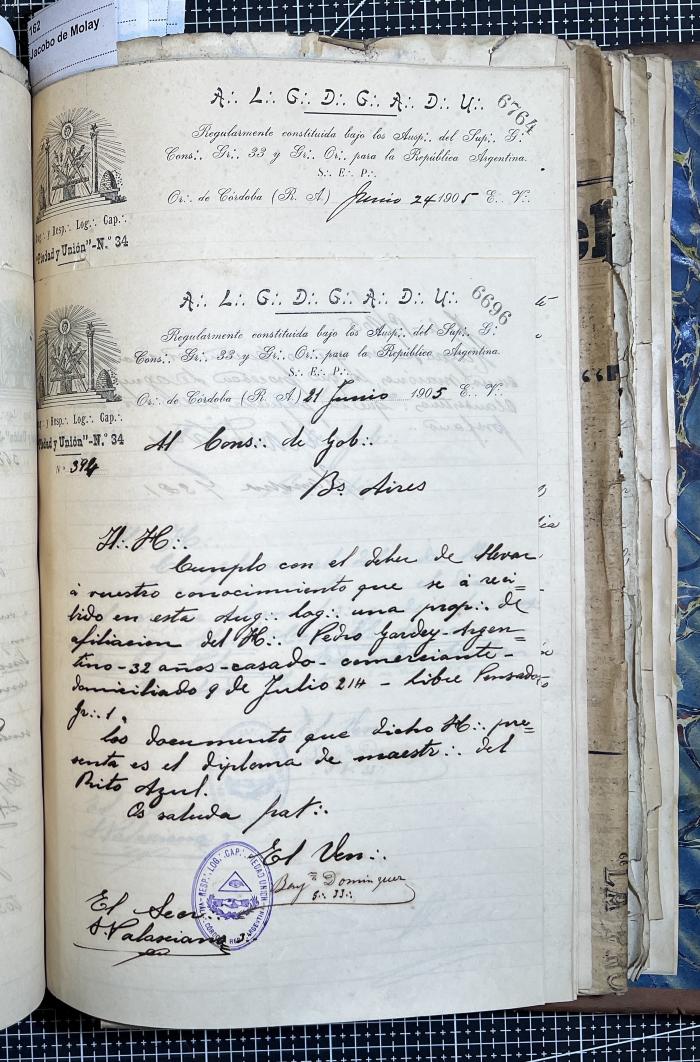 162
Jacobo de Molay
A∴ L∴ G∴ D∴ G∴ A∴ D∴ U∴
6764
Regularmente constituida bajo los Ausp∴ del Sup∴ G∴
Cons∴ Gr∴ 33 y Gr∴ Or∴ para la República Argentina.
S∴ E∴ P∴
Or∴ de Córdoba (R. A) Junio 24 1905 E∴ V∴
y Resp∴ Log∴ Cap∴
"Piedad y Unión"-N.º 34
A∴ L∴ G∴ D∴ G∴ A∴ D∴ U∴
6696
Regularmente constituida bajo los Ausp∴ del Sup∴ G∴
Cons∴ Gr∴ 33 y Gr∴ Or∴ para la República Argentina.
S∴ E∴ P∴
Or∴ de Córdoba (R. A) 21 Junio 1905 E∴ V∴
y Resp∴ Log∴ Cap∴
"Piedad y Unión"-N.º 34
N.º 394
Al Cons∴ de Gob∴
Bs Aires
H∴ H∴
Cumplo con el deber de llevar
á vuestro conocimiento que se á reci=
bido en esta Aug∴ Log∴ una prop∴ de
afiliacion del H∴ Pedro Gardey-Argen=
tino-32 años-casado-comerciante-
domiciliado 9 de Julio 214 - libre Pensador
Gr∴ 1.
Los documento que dicho H∴ pre=
senta es el diploma de maestr∴ del
Rito Azul.
Os saluda frat∴
El Ven∴
Dominguez
G∴ 33∴
RESP∴ LOG∴ CAP∴ PIEDAD UNION
El Secr∴